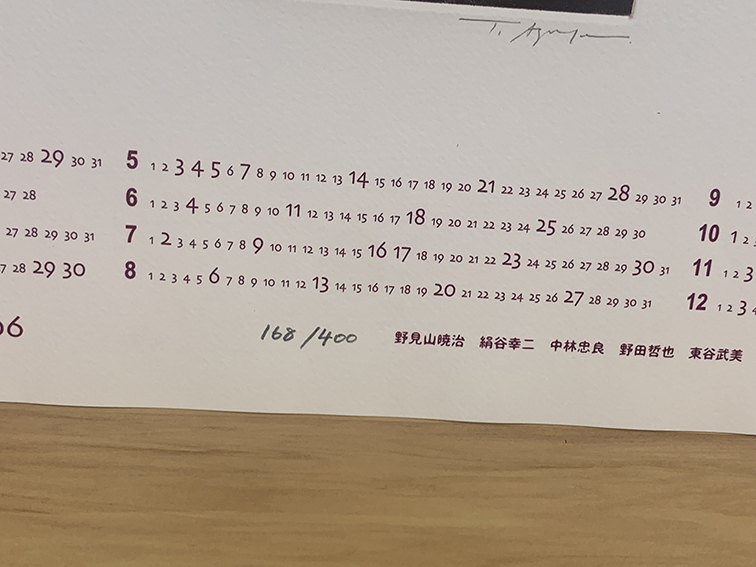 27 28 29 30 31 5 1 2 3 4 5 6 7 8 9 10 11 12 13 14 15 16 17 18 19 20 21 22 23 24 25 26 27 28 29 30 31 9 1 2
27 28 6 1 2 3 4 5 6 7 8 9 10 11 12 13 14 15 16 17 18 19 20 21 22 23 24 25 26 27 28 29 30 10 1 2
27 28 29 30 31 7 1 2 3 4 5 6 7 8 9 10 11 12 13 14 15 16 17 18 19 20 21 22 23 24 25 26 27 28 29 30 31 11 1 2 3
28 29 30 8 1 2 3 4 5 6 7 8 9 10 11 12 13 14 15 16 17 18 19 20 21 22 23 24 25 26 27 28 29 30 31 12 1 2 3
6 168/400 野見山暁治 絹谷幸二 中林忠良 野田哲也 東谷武美